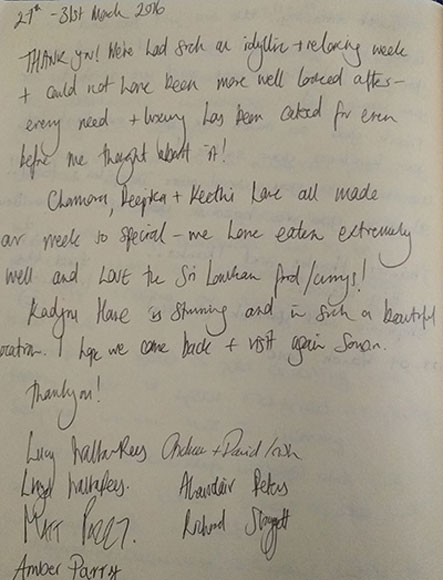 27th - 31st March 2016
THANK you! We've had such an idyllic + relaxing week
+ could not have been more well looked after -
every need + luxury has been catered for even
before we thought about it!
Chamara, Deepika + Keethi have all made
our week so special - we have eaten extremely
well and LOVE the Sri Lankan food / currys!
Kadju House is stunning and in such a beautiful
location. I hope we come back + visit again soon.
Thankyou!
Lucy Andrew + David
Alasdair Peters
MATT Richard
Amber Parry